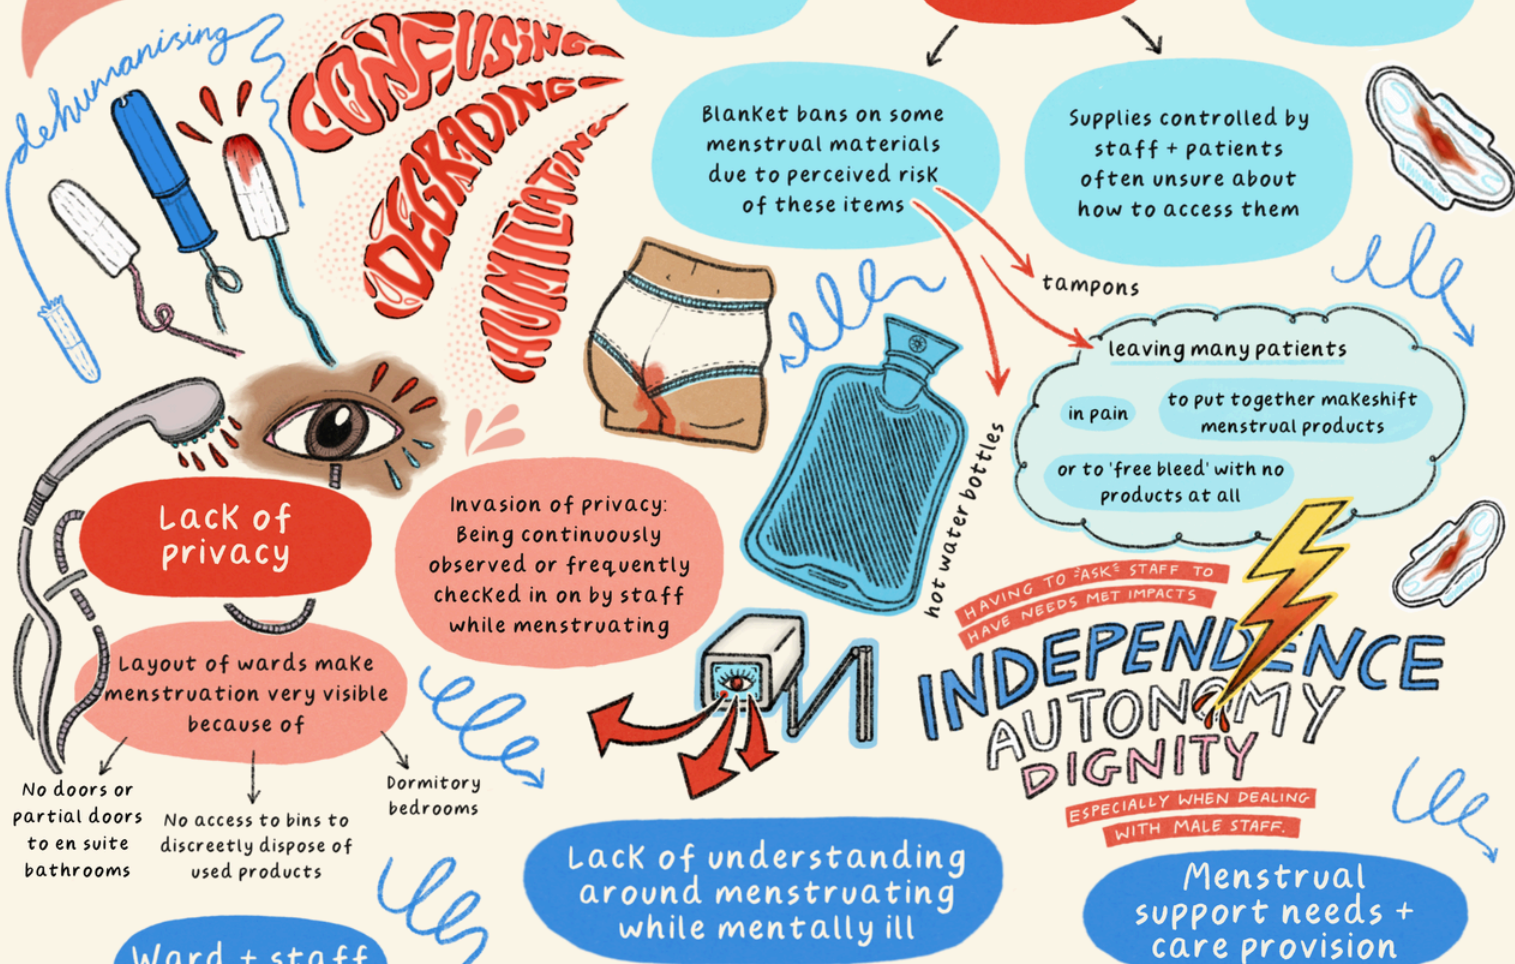 dehumanising
CONFUSING
DEGRADING
HUMILIATING
Blanket bans on some
menstrual materials
due to perceived risk
of these items
Supplies controlled by
staff + patients
often unsure about
how to access them
tampons
hot water bottles
leaving many patients
in pain
to put together makeshift
menstrual products
or to 'free bleed' with no
products at all
Lack of
privacy
Invasion of privacy:
Being continuously
observed or frequently
checked in on by staff
while menstruating
Layout of wards make
menstruation very visible
because of
No doors or
partial doors
to en suite
bathrooms
No access to bins to
discreetly dispose of
used products
Dormitory
bedrooms
HAVING TO "ASK" STAFF TO
HAVE NEEDS MET IMPACTS
INDEPENDENCE
AUTONOMY
DIGNITY
ESPECIALLY WHEN DEALING
WITH MALE STAFF.
Lack of understanding
around menstruating
while mentally ill
Menstrual
support needs +
care provision
Ward + staff